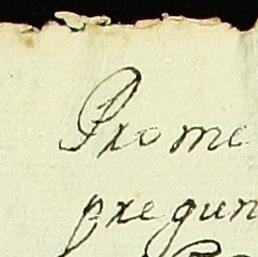 Prome
pregun